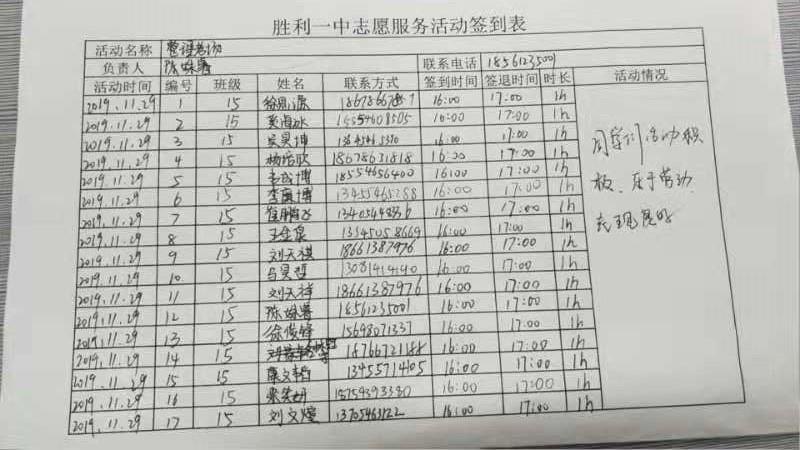 胜利一中志愿服务活动签到表
活动名称 整理考场
负责人 陈姝 联系电话 18561235001
活动时间 编号 班级 姓名 联系方式 签到时间 签退时间 时长 活动情况
2019.11.29 1 15 16:00 17:00 1h
2019.11.29 2 15 冰 16:00 17:00 1h
2019.11.29 3 15 吴昊博 16:00 17:00 1h
2019.11.29 4 15 杨培欣 18678631818 16:00 17:00 1h
2019.11.29 5 15 博 18554656400 16:00 17:00 1h
2019.11.29 6 15 李 博 16:00 17:00 1h
2019.11.29 7 15 崔鹏飞 16:00 17:00 1h
2019.11.29 8 15 王 13345058669 16:00 17:00 1h
2019.11.29 9 15 刘天祺 18661387976 16:00 17:00 1h
2019.11.29 10 15 昊 16:00 17:00 1h
2019.11.29 11 15 刘天祥 18661387976 16:00 17:00 1h
2019.11.29 12 15 陈姝 18561235001 16:00 17:00 1h
2019.11.29 13 15 徐俊锋 15698071337 16:00 17:00 1h
2019.11.29 14 15 18766721188 16:00 17:00 1h
2019.11.29 15 15 文韬 13455714105 16:00 17:00 1h
2019.11.29 16 15 15754393330 16:00 17:00 1h
2019.11.29 17 15 刘文 13705463122 16:00 17:00 1h
同学们活动积
极、乐于劳动
表现良好